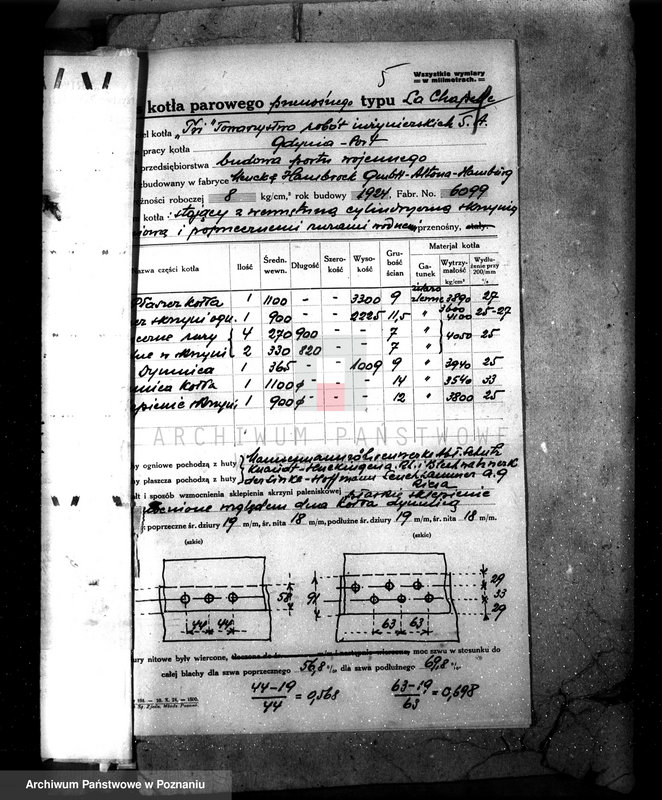 5
Wszystkie wymiary
w milimetrach.
kotła parowego przenośnego typu La Chapelle
el kotła „Tri" Towarzystwo robót inżynierskich S.A.
pracy kotła Gdynia-Port
przedsiębiorstwa budowa portu wojennego
budowany w fabryce Menck & Hambrock GmbH-Altona-Hamburg
żności roboczej 8 kg/cm,² rok budowy 1924, Fabr. No. 6099
kotła: stojący z wewnętrzną cylindryczną skrzynią
niową i poprzecznemi rurami wodnemi, przenośny, stały.
Nazwa części kotła Ilość Średn. wewn. Długość Szerokość Wysokość Grubość ścian Materjał kotła
Gatunek Wytrzymałość kg/cm² Wydłużenie przy 200/mm %
Płaszcz kotła 1 1100 - - 3300 9 żelazo zlewne 3890 27
skrzyni ogn. 1 900 - - 2225 11,5 " 3600 4100 25-27
rury 4 270 900 - - 7 " 4050 25
w skrzyni 2 330 820 - - 7 "
Dymnica 1 365 - - 1009 9 " 3940 25
nica kotła 1 1100 ø - - 14 " 3540 33
pienie skrzyni 1 900 ø - - 12 " 3800 25
ARCHIWUM PAŃSTWOWE
y ogniowe pochodzą z huty Mannesmannröhrenwerke Abt. Schulz
y płaszcza pochodzą z huty Knaudt-Huckingen a. Rh. i Blechwalzwerk
Riesa
ałt i sposób wzmocnienia sklepienia skrzyni paleniskowej płaskie sklepienie
względem dna kotła dymnicą
poprzeczne śr. dziury 19 m/m, śr. nita 18 m/m, podłużne śr. dziury 19 m/m, śr. nita 18 m/m.
(szkic) (szkic)
58 91 29
33
29
44 44 63 63
ury nitowe były wiercone, moc szwu w stosunku do
całej blachy dla szwa poprzecznego 56,8 % dla szwa podłużnego 69,8 %
44-19
44 = 0,568
63-19
63 = 0,698
Archiwum Państwowe w Poznaniu